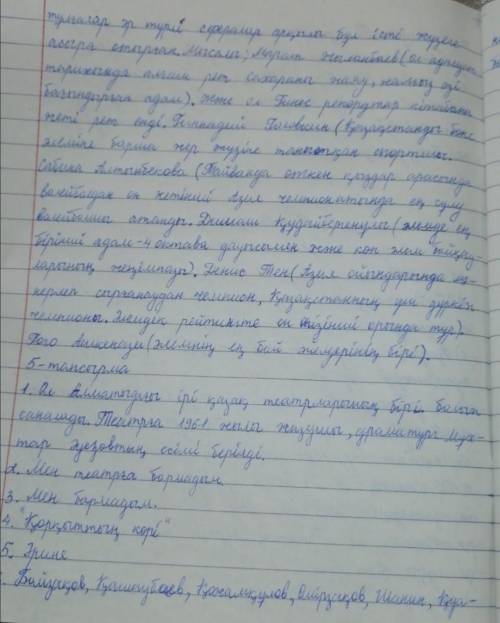 тұлғалар әр түрлі сфералар арқылы бұл істі жүзеге
асыра отырған. Мысалы; Марат Жыланбаев (ол адамзат
тарихында алғаш рет сахараны жаяу, жалғыз өзі
бағындырған адам). Және ол Гинес рекордтар кітабына
жеті рет енді. Геннадий Головкин (Қазақстанды бокс
әлеміне барша жер жүзіне танытқан спортшы.
Сабина Алтынбекова (Тайванда өткен қыздар арасында
волейболдан он жетінші Азия чемпионатында ең сұлу
волейболшы атанды. Димаш Құдайбергенұлы (әлемде ең
бірінші адам - 4 октава даусымен және көп әлем байқау-
ларының жеңімпазы). Денис Тен (Азия ойындарында мә-
нерлеп сырғанаудан чемпион, Қазақстанның үш дүркін
чемпионы. Әлемдік рейтингте он сегізінші орында тұр).
Гого Ашкенази (әлемнің ең бай әйелдерінің бірі).
5-тапсырма
1. Ол Алматыдағы ірі қазақ театрларының бірі болып
саналады. Театрға 1961 жылы жазушы, драматург Мұх-
тар Әуезовтың есімі берілді.
2. Мен театрға бармадым.
3. Мен бармадым.
4. "Қорқыттың көрі"
5. Әрине
Байзақов, Қышқұбаев, Қожамқұлов, Өмірзақов, Шанин, Қуа-